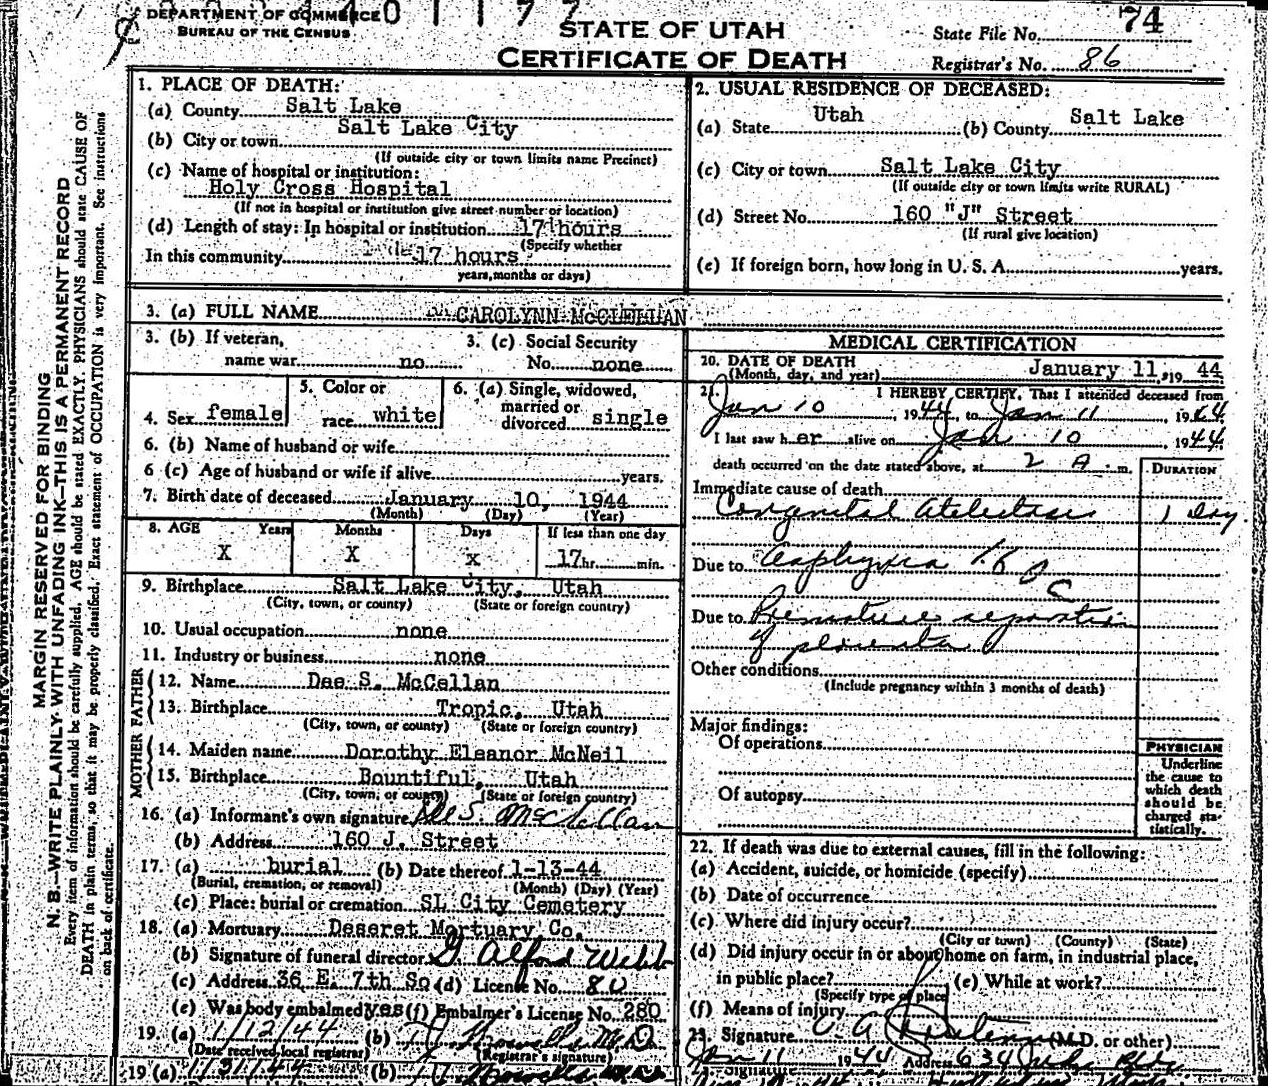 DEPARTMENT OF COMMERCE
BUREAU OF THE CENSUS
STATE OF UTAH
CERTIFICATE OF DEATH
State File No. 74
Registrar's No. 86
MARGIN RESERVED FOR BINDING
N. B.—WRITE PLAINLY WITH UNFADING INK—THIS IS A PERMANENT RECORD
Every item of information should be carefully supplied. AGE should be stated EXACTLY. PHYSICIANS should state CAUSE OF
DEATH in plain terms, so that it may be properly classified. Exact statement of OCCUPATION is very important. See instructions
on back of certificate.
1. PLACE OF DEATH:
(a) County Salt Lake
(b) City or town Salt Lake City
(If outside city or town limits name Precinct)
(c) Name of hospital or institution:
Holy Cross Hospital
(If not in hospital or institution give street number or location)
(d) Length of stay: In hospital or institution 17 hours
(Specify whether
In this community 17 hours
years, months or days)
2. USUAL RESIDENCE OF DECEASED:
(a) State Utah (b) County Salt Lake
(c) City or town Salt Lake City
(If outside city or town limits write RURAL)
(d) Street No. 160 "J" Street
(If rural give location)
(e) If foreign born, how long in U. S. A. years.
3. (a) FULL NAME CAROLYNN McCLELLAN
3. (b) If veteran, name war no
3. (c) Social Security No. none
4. Sex female
5. Color or race white
6. (a) Single, widowed, married or divorced single
6. (b) Name of husband or wife
6 (c) Age of husband or wife if alive years.
7. Birth date of deceased January 10, 1944
(Month) (Day) (Year)
8. AGE Years Months Days If less than one day
X X X 17 hr. min.
9. Birthplace Salt Lake City, Utah
(City, town, or county) (State or foreign country)
10. Usual occupation none
11. Industry or business none
FATHER
12. Name Dee S. McCellan
13. Birthplace Tropic, Utah
(City, town, or county) (State or foreign country)
MOTHER
14. Maiden name Dorothy Eleanor McNeil
15. Birthplace Bountiful, Utah
(City, town, or county) (State or foreign country)
16. (a) Informant's own signature Dee S. McClellan
(b) Address 160 J. Street
17. (a) burial (b) Date thereof 1-13-44
(Burial, cremation, or removal) (Month) (Day) (Year)
(c) Place: burial or cremation SL City Cemetery
18. (a) Mortuary Deseret Mortuary Co.
(b) Signature of funeral director G Alford Webb
(c) Address 36 E. 7th So (d) License No. 80
(e) Was body embalmed yes (f) Embalmer's License No. 280
19. (a) 1/12/44 (b) M.D.
(Date received local registrar) (Registrar's signature)
19 (a) (b)
MEDICAL CERTIFICATION
20. DATE OF DEATH January 11, 19 44
(Month, day, and year)
21. I HEREBY CERTIFY, That I attended deceased from
Jan 10, 1944, to Jan 11 1944
I last saw her alive on Jan 10, 1944
death occurred on the date stated above, at 2 A. m.
DURATION
Immediate cause of death
Congenital Atelectasis 1 Day
Due to Asphyxia
Due to Premature separation
of placenta
Other conditions
(Include pregnancy within 3 months of death)
Major findings:
Of operations
Of autopsy
PHYSICIAN
Underline
the cause to
which death
should be
charged sta-
tistically.
22. If death was due to external causes, fill in the following:
(a) Accident, suicide, or homicide (specify)
(b) Date of occurrence
(c) Where did injury occur?
(City or town) (County) (State)
(d) Did injury occur in or about home on farm, in industrial place,
in public place? (e) While at work?
(Specify type of place)
(f) Means of injury
23. Signature (M.D. or other)
Jan 11 1944 Address 634